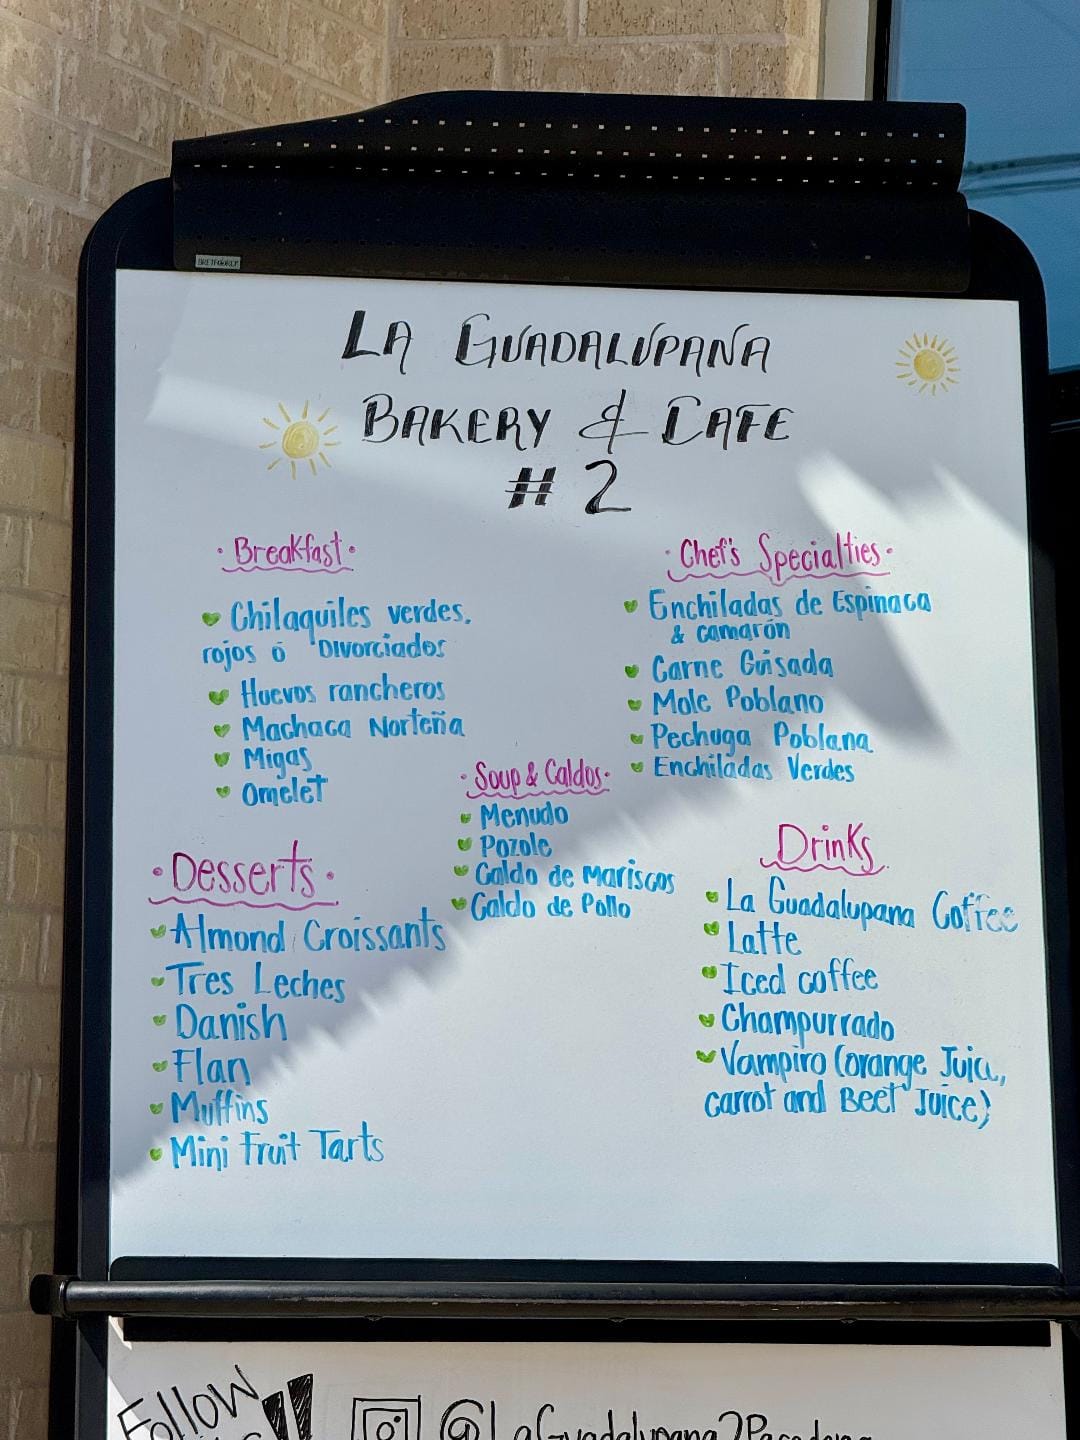 LA GUADALUPANA
BAKERY & CAFE
# 2
· Breakfast ·
Chilaquiles verdes,
rojos ó Divorciados
Huevos rancheros
Machaca Norteña
Migas
Omelet
· Chef's Specialties ·
Enchiladas de Espinaca
& camarón
Carne Guisada
Mole Poblano
Pechuga Poblana
Enchiladas Verdes
· Soup & Caldos ·
Menudo
Pozole
Caldo de Mariscos
Caldo de Pollo
· Desserts ·
Almond Croissants
Tres Leches
Danish
Flan
Muffins
Mini Fruit Tarts
Drinks
La Guadalupana Coffee
Latte
Iced coffee
Champurrado
Vampiro (orange Juice,
carrot and Beet Juice)
Follow
@LaGuadalupana2Pasadena